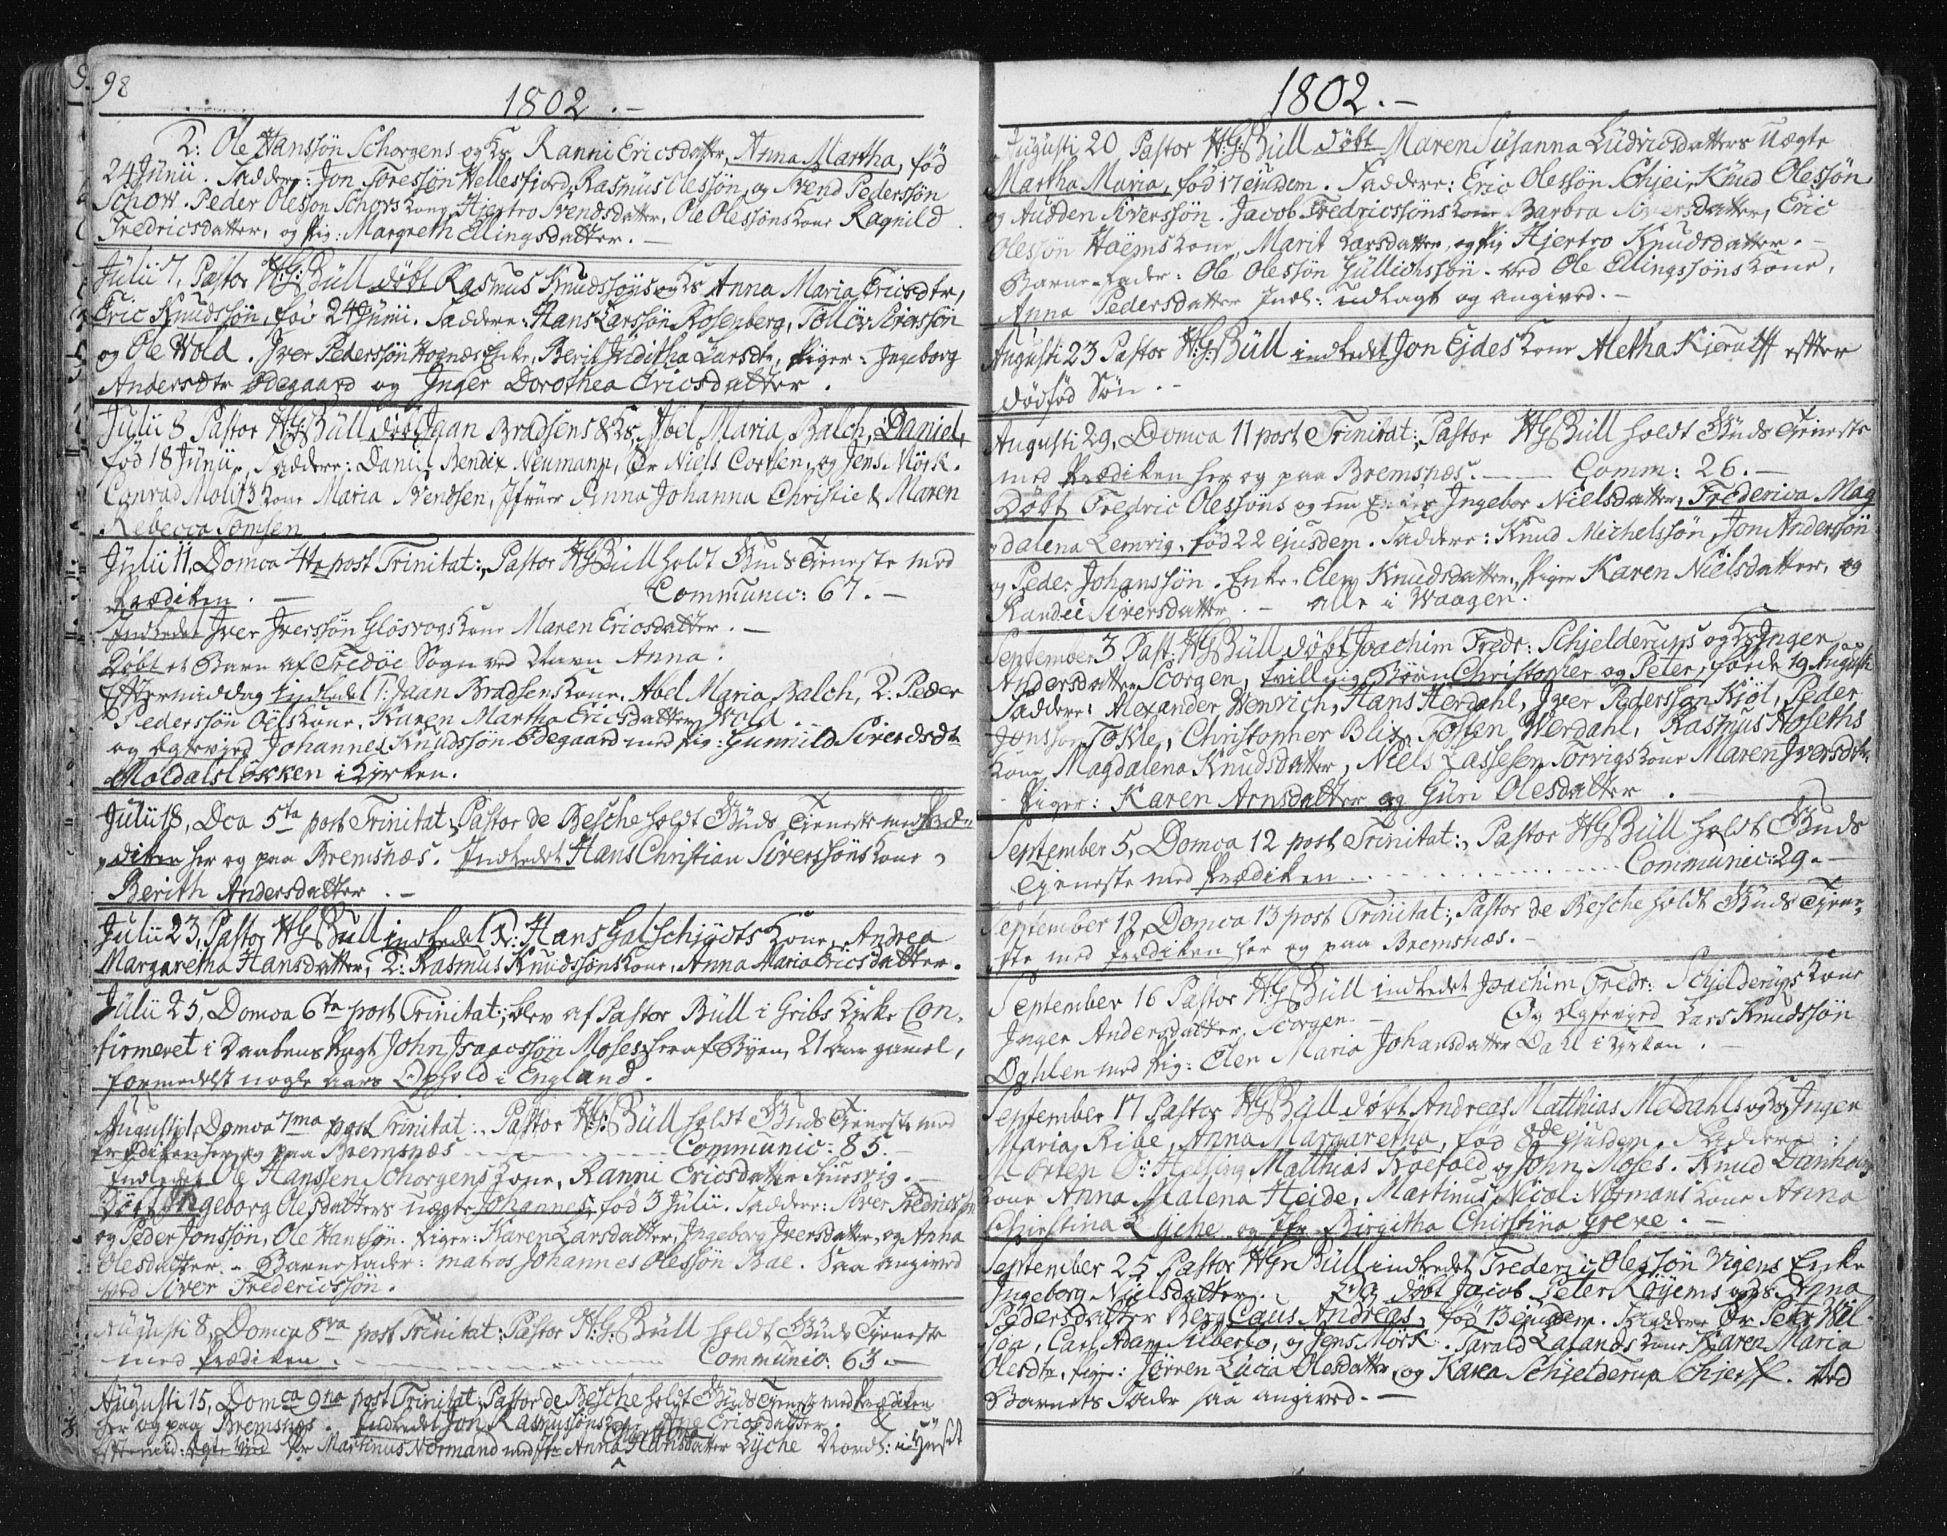 98
1802.-
2: Ole Hanssön Schorgens og Hs Ranni Ericsdatter, Anna Martha, fød
24 Junii. Faddere: Jon Toressön Hellesfiord, Rasmus Olessön, og Svend Pederssön
Schow. Peder Olesson Schows Kone, Hjertro Svendsdatter, Ole Olessöns Kone Ragnild
Fredricsdatter, og Pig: Margreth Ellingsdatter.-
Julii 7, Pastor H:G: Büll döbt Rasmus Knudssöns og Hs Anna Maria Ericsdtr,
Eric Knudssön, fød 24 Junii. Faddere: Hans Larssön Rosenberg, Tolløv Siverssön
og Ole Wold. Iver Pederssön Hognæs Enke, Berit Juditha Larsdtr, Piger: Ingeborg
Andersdtr Ødegaard og Inger Dorothea Ericsdatter.
Julii 8 Pastor H:G: Büll döbt Jaan Bradsens & Hs, Abel Maria Balch, Daniel,
fød 18 Junii. Faddere: Daniel Bendix Neumann, Hr Niels Coetsen, og Jens Mörk.
Conrad Moltzs Kone Maria Svendsen, Jfruer Anna Johanna Christie & Maren
Rebecca Jemsen
Julii 11, Domca 4ta post Trinitat:, Pastor HG Büll holdt Guds Tieneste med
Prædiken. - Communic: 67.-
Indledet Iver Iverssön Glosvogs Kone Maren Ericsdatter.-
Döbt et Barn af Fredöe Sogn ved Navn Anna.
Eftermiddag indledet 1: Jaan Bradsens Kone, Abel Maria Balch, 2: Peder
Pederssön Öels Kone, Karen Martha Ericsdatter Wold.-
og Egtevied Johannes Knudssön Ødegaard med Pig: Gunnild Siverdsdtr
Moldalslökken i Kirken.
Julii 18, Dca 5ta post Trinitat, Pastor de Besche holdt Guds Tieneste med Præ-
diken her og paa Bremsnæs. Indledet Hans Christian Siverssöns Kone,
Berith Andersdatter.-
Julii 23, Pastor HG Büll indledet 1: Hans Galschiödts Kone, Andrea
Margaretha Hansdatter, 2: Rasmus Knudssöns Kone, Anna Maria Ericsdatter.
Julii 25, Domca 6ta post Trinitat:, blev af Pastor Büll i Gribs Kirke Con-
firmeret i Daabens Pagt John Isaacssön Moses, her af Byen, 21 Aar gamel,
formedelst nogle Aars Ophold i England.
Augusti 1, Domca 7ma post Trinitat:. Pastor H:G: Büll holdt Guds Tieneste med
Prædiken her og paa Bremsnæs - Communic: 85.-
Indledet Ole Hanssen Schorgens Kone, Ranni Ericsdatter
Döbt Ingeborg Olesdatters uægte Johannes, fød 3 Julii. Faddere: Siver Fredricssön
og Peder Jonssön, Ole Hanssön. Piger: Karen Larsdatter, Ingeborg Iversdatter, og Anna
Olesdatter.- Barnefader: matros Johannes Olessön Bae. Saa angived
ved Siver Fredericssön.
Augusti 8, Domca 8va post Trinitat: Pastor H:G: Büll holdt Guds Tieneste
med Prædiken. - Communic: 63.-
Augusti 15, Domca 9na post Trinitat: Pastor de Besche holdt Guds Tieneste med Prædiken
her og paa Bremsnæs. Indledet Jon Rasmussöns Kone Ane Ericsdatter. &
Eftermid: Egte vied Hr Martinus Normand med Jfr Anna Christina Hansdatter Lyche Nordl: i Huset
1802.-
Augusti 20 Pastor H:G: Büll döbt Maren Susanna Ludvicsdatters Uægte
Martha Maria, fød 17 ejusdem. Faddere: Eric Olessön Schjei, Knud Olessön
og Audden Siverssön. Jacob Fredricssöns Kone Barbra Siversdatter, Eric
Olessön Hoëms Kone, Marit Larsdatter, og Pig Hjertro Knudsdatter.-
Barne-fader: Ole Olessön Gullichssön. ved Ole Ellingssöns Kone,
Anna Pedersdatter Indl: udlagt og angived.-
Augusti 23 Pastor H:G: Büll indledet Jon Ejdes Kone Aletha Kjerulff efter
dödfød Søn.-
Augusti 29, Domca 11 post Trinitat: Pastor HG Büll holdt Guds Tieneste
med Prædiken her og paa Bremsnæs. - Comm: 26.-
Döbt Fredric Olessöns og nu Enke Ingebor Nielsdatter, Frederica Mag
dalena Lemvig, fød 22 ejusdem. Faddere: Knud Michelssön, Jon Anderssön
og Peder Johanssön. Enke Elen Knudsdatter, Piger Karen Nielsdatter, og
Randei Siversdatter.- alle i Waagen.
September 3 Past: HG Büll döbt Joachim Fredr: Schjelderups og Hs Inger
Andersdatter Scorgen, tvilling Börn Christopher og Peter, føde 19 Augusti
Faddere: Alexander Henrich, Hans Herdahl, Iver Pederssön Kjöl, Peder
Jonsson Tokle, Christopher Blix, Tosten Werdahl, Rasmus Hoseths
Kone Magdalena Knudsdatter, Niels Lassesen Torvigs Kone Maren Iversdtr,
Piger: Karen Arnsdatter og Guri Olesdatter.-
September 5, Domca 12 post Trinitat:, Pastor HG Büll holdt Guds
Tieneste med Prædiken. - Communic: 29.-
September 12, Domca 13 post Trinitat:, Pastor de Besche holdt Guds Tiene-
ste med Prædiken her og paa Bremsnæs.-
September 16 Pastor H:G: Büll indledet Joachim Fredr: Schjelderups Kone
Inger Andersdatter, Scorgen.- Og Egtevied Lars Knudssön
Dahlen med Pig: Elen Maria Johansdatter Dahl i Kirken.-
September 17 Pastor HG Büll döbt Andreas Matthias Medahls og Hs, Inger
Maria Ribe, Anna Margaretha, fød 8de ejusdem. Faddere:
Morten Helsing, Matthias Kroefold og John Moses. Knud Danhoigs
Kone Anna Malena Heide, Martinus Nicol: Normans Kone Anna
Christina Lyche og Jfr Birgitha Christina Greve.-
September 25 Pastor HG: Büll indledet Frederic Olessön Vigens Enke
Ingeborg Nielsdatter.- Og döbt Jacob Peter Röyems og Hs Anna
Pedersdatter Berg, Caus Andreas, fød 13 ejusdem. Faddere Hr Peter Wil-
son, Carl Adam Silberto, og Jens Mörk. Tarald Lalands Kone Karen Maria
Olesdtr, Pige: Jörren Lucia Olesdatter, og Karen Schjelderup Schjerff. Ved
Barnets Fader saa angived.-